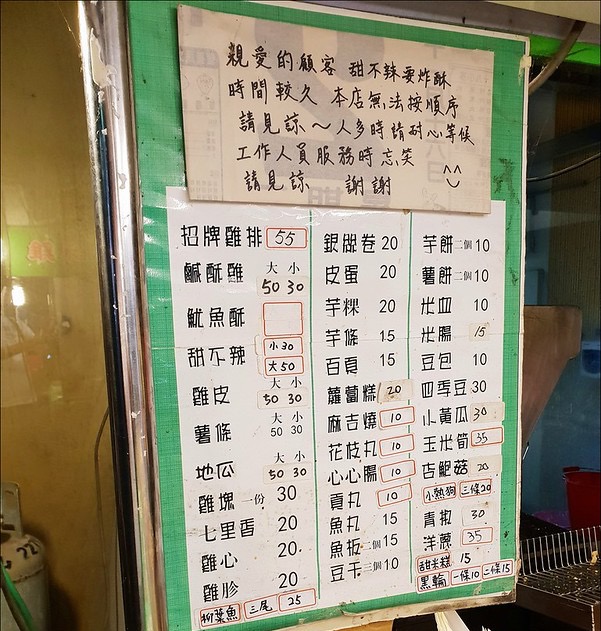 親愛的顧客 甜不辣要炸酥
時間較久 本店無法按順序
請見諒~人多時請耐心等候
工作人員服務時忘笑
請見諒 謝謝 ^^
招牌雞排 55
鹹酥雞 大50 小30
魷魚酥
甜不辣 小30 大50
雞皮 大50 小30
薯條 大50 小30
地瓜 大50 小30
雞塊一份 30
七里香 20
雞心 20
雞胗 20
柳葉魚 三尾 25
銀絲卷 20
皮蛋 20
芋粿 20
芋條 15
百頁 15
蘿蔔糕 20
麻吉燒 10
花枝丸 10
心心腸 10
貢丸 10
魚丸 15
魚板二個 15
豆干三個 10
芋餅二個 10
薯餅二個 10
米血 10
米腸 15
豆包 10
四季豆 30
小黃瓜 30
玉米筍 35
杏鮑菇 20
小熱狗 三條20
青椒 30
洋蔥 35
甜米糕 15
黑輪 一條10 二條15